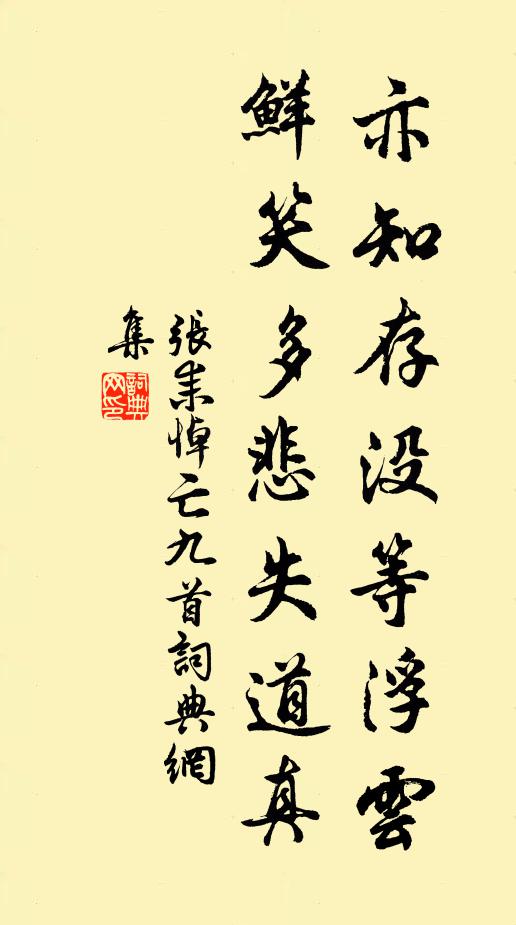 亦知存没等浮雲
鮮笑多悲失道真
張耒悼亡九首詞典網
集
詞典
网印